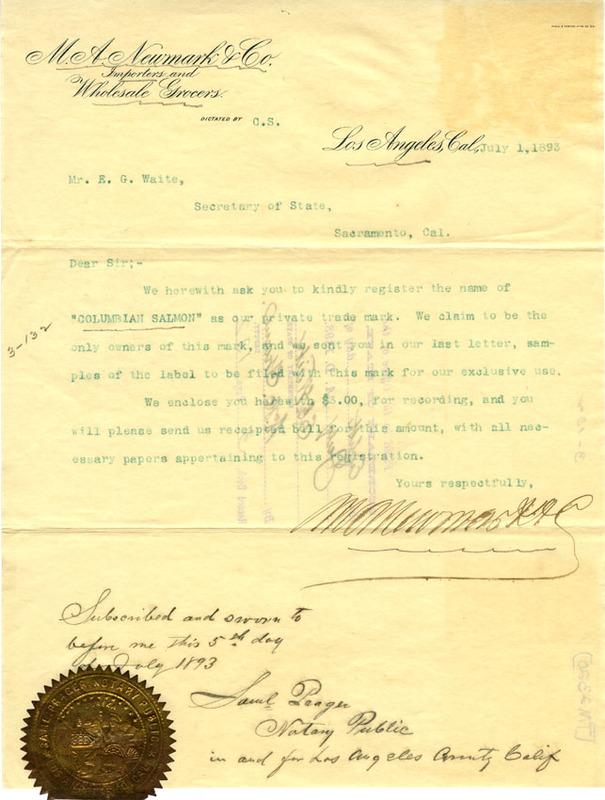 M. A. Newmark & Co.
Importers and
Wholesale Grocers.
DICTATED BY C.S.
Los Angeles, Cal., July 1, 1893
Mr. E. G. Waite,
Secretary of State,
Sacramento, Cal.
Dear Sir;-
We herewith ask you to kindly register the name of
"COLUMBIAN SALMON" as our private trade mark. We claim to be the
only owners of this mark, and we sent you in our last letter, sam-
ples of the label to be filed with this mark for our exclusive use.
We enclose you herewith $3.00, for recording, and you
will please send us receipted bill for this amount, with all nec-
essary papers appertaining to this registration.
Yours respectfully,
M A Newmark & Co
3-132
Subscribed and sworn to
before me this 5th day
of July 1893
Saml Prager
Notary Public
in and for Los Angeles County Calif